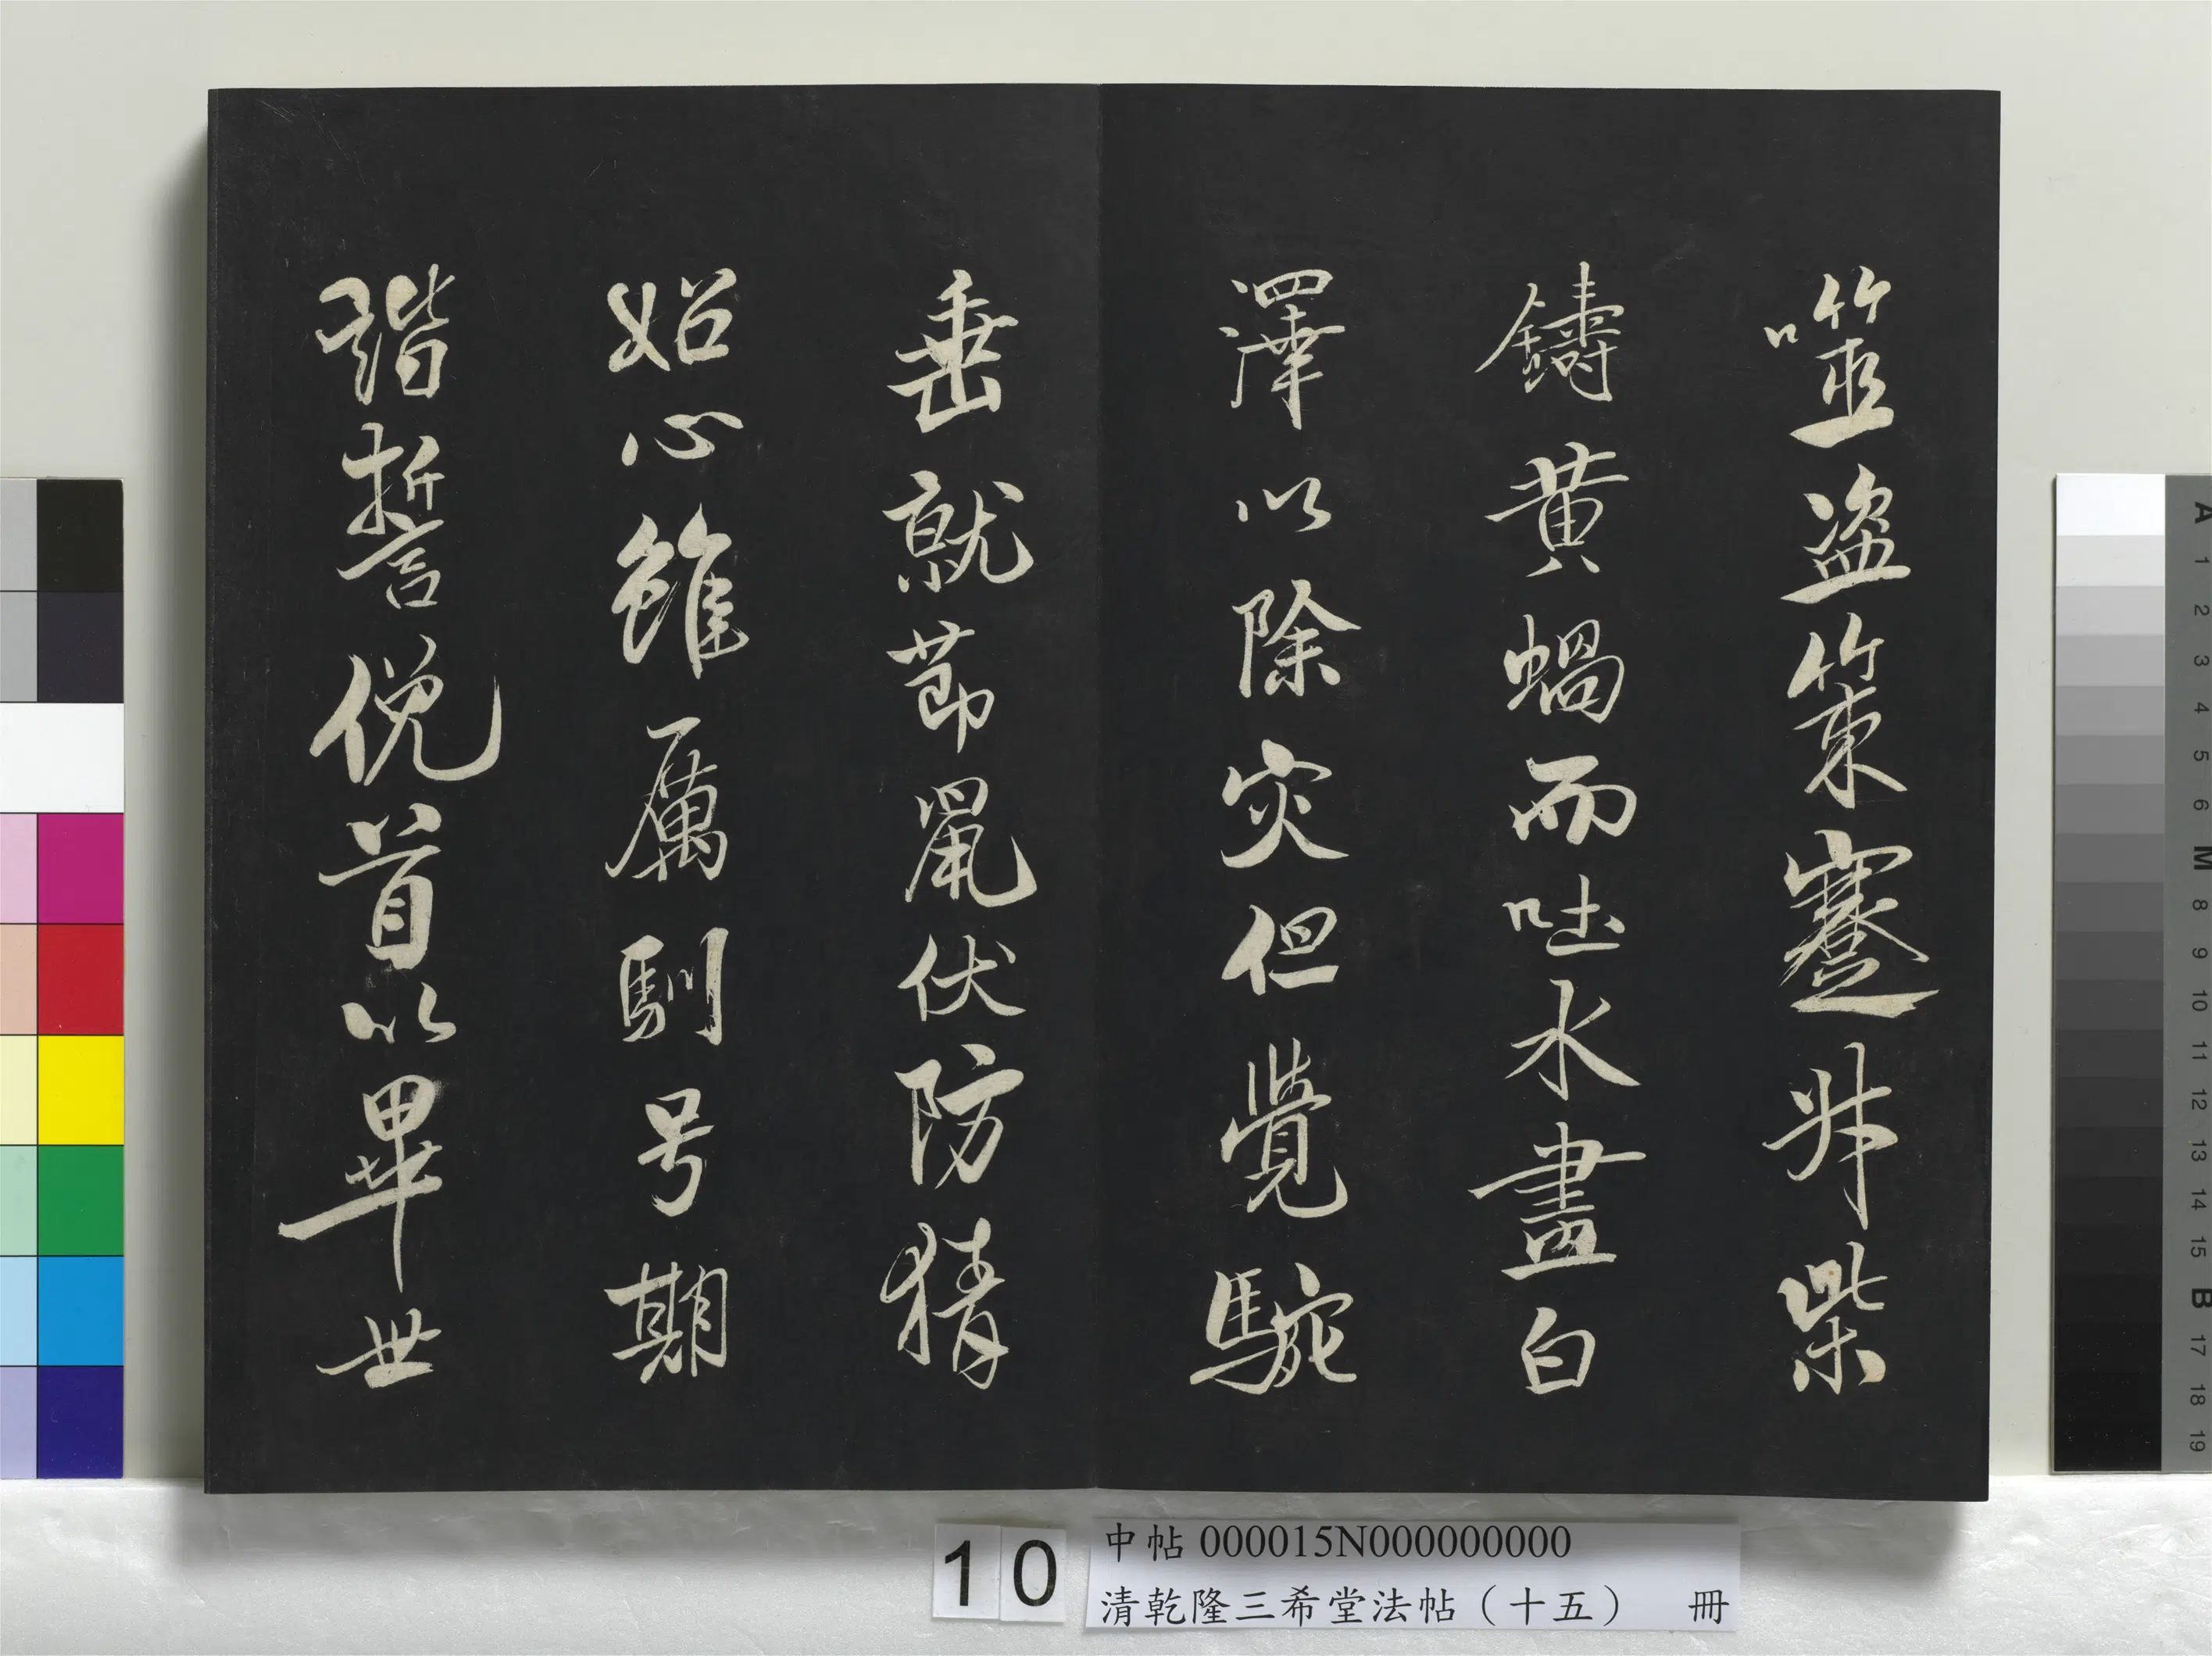 噬盗策蹇升柴
鑄黃蝸而吐水畫白
澤以除灾但覺駝
垂就節鼠伏防猜
妬心雖厲馴号期
階誓俛首以畢世
10
中帖 000015N000000000
清乾隆三希堂法帖（十五） 冊
A 1 2 3 4 5 6 M 8 9 10 11 12 13 14 15 B 17 18 19